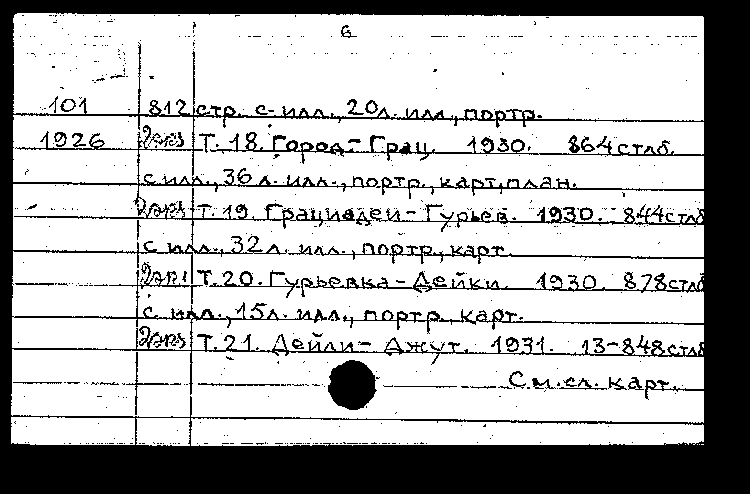 6
101 812 стр. с илл., 20л. илл., портр.
1926 2экз Т. 18. Город - Грац. 1930. 864 стлб.
с илл., 36 л. илл., портр., карт, план.
2экз Т. 19. Грациадеи - Гурьев. 1930. 844 стлб
с илл., 32 л. илл., портр., карт.
2экз Т. 20. Гурьевка - Дейки. 1930. 878 стлб
с илл., 15л. илл., портр., карт.
2экз Т. 21. Дейли - Джут. 1931. 13-848 стлб
См. сл. карт.